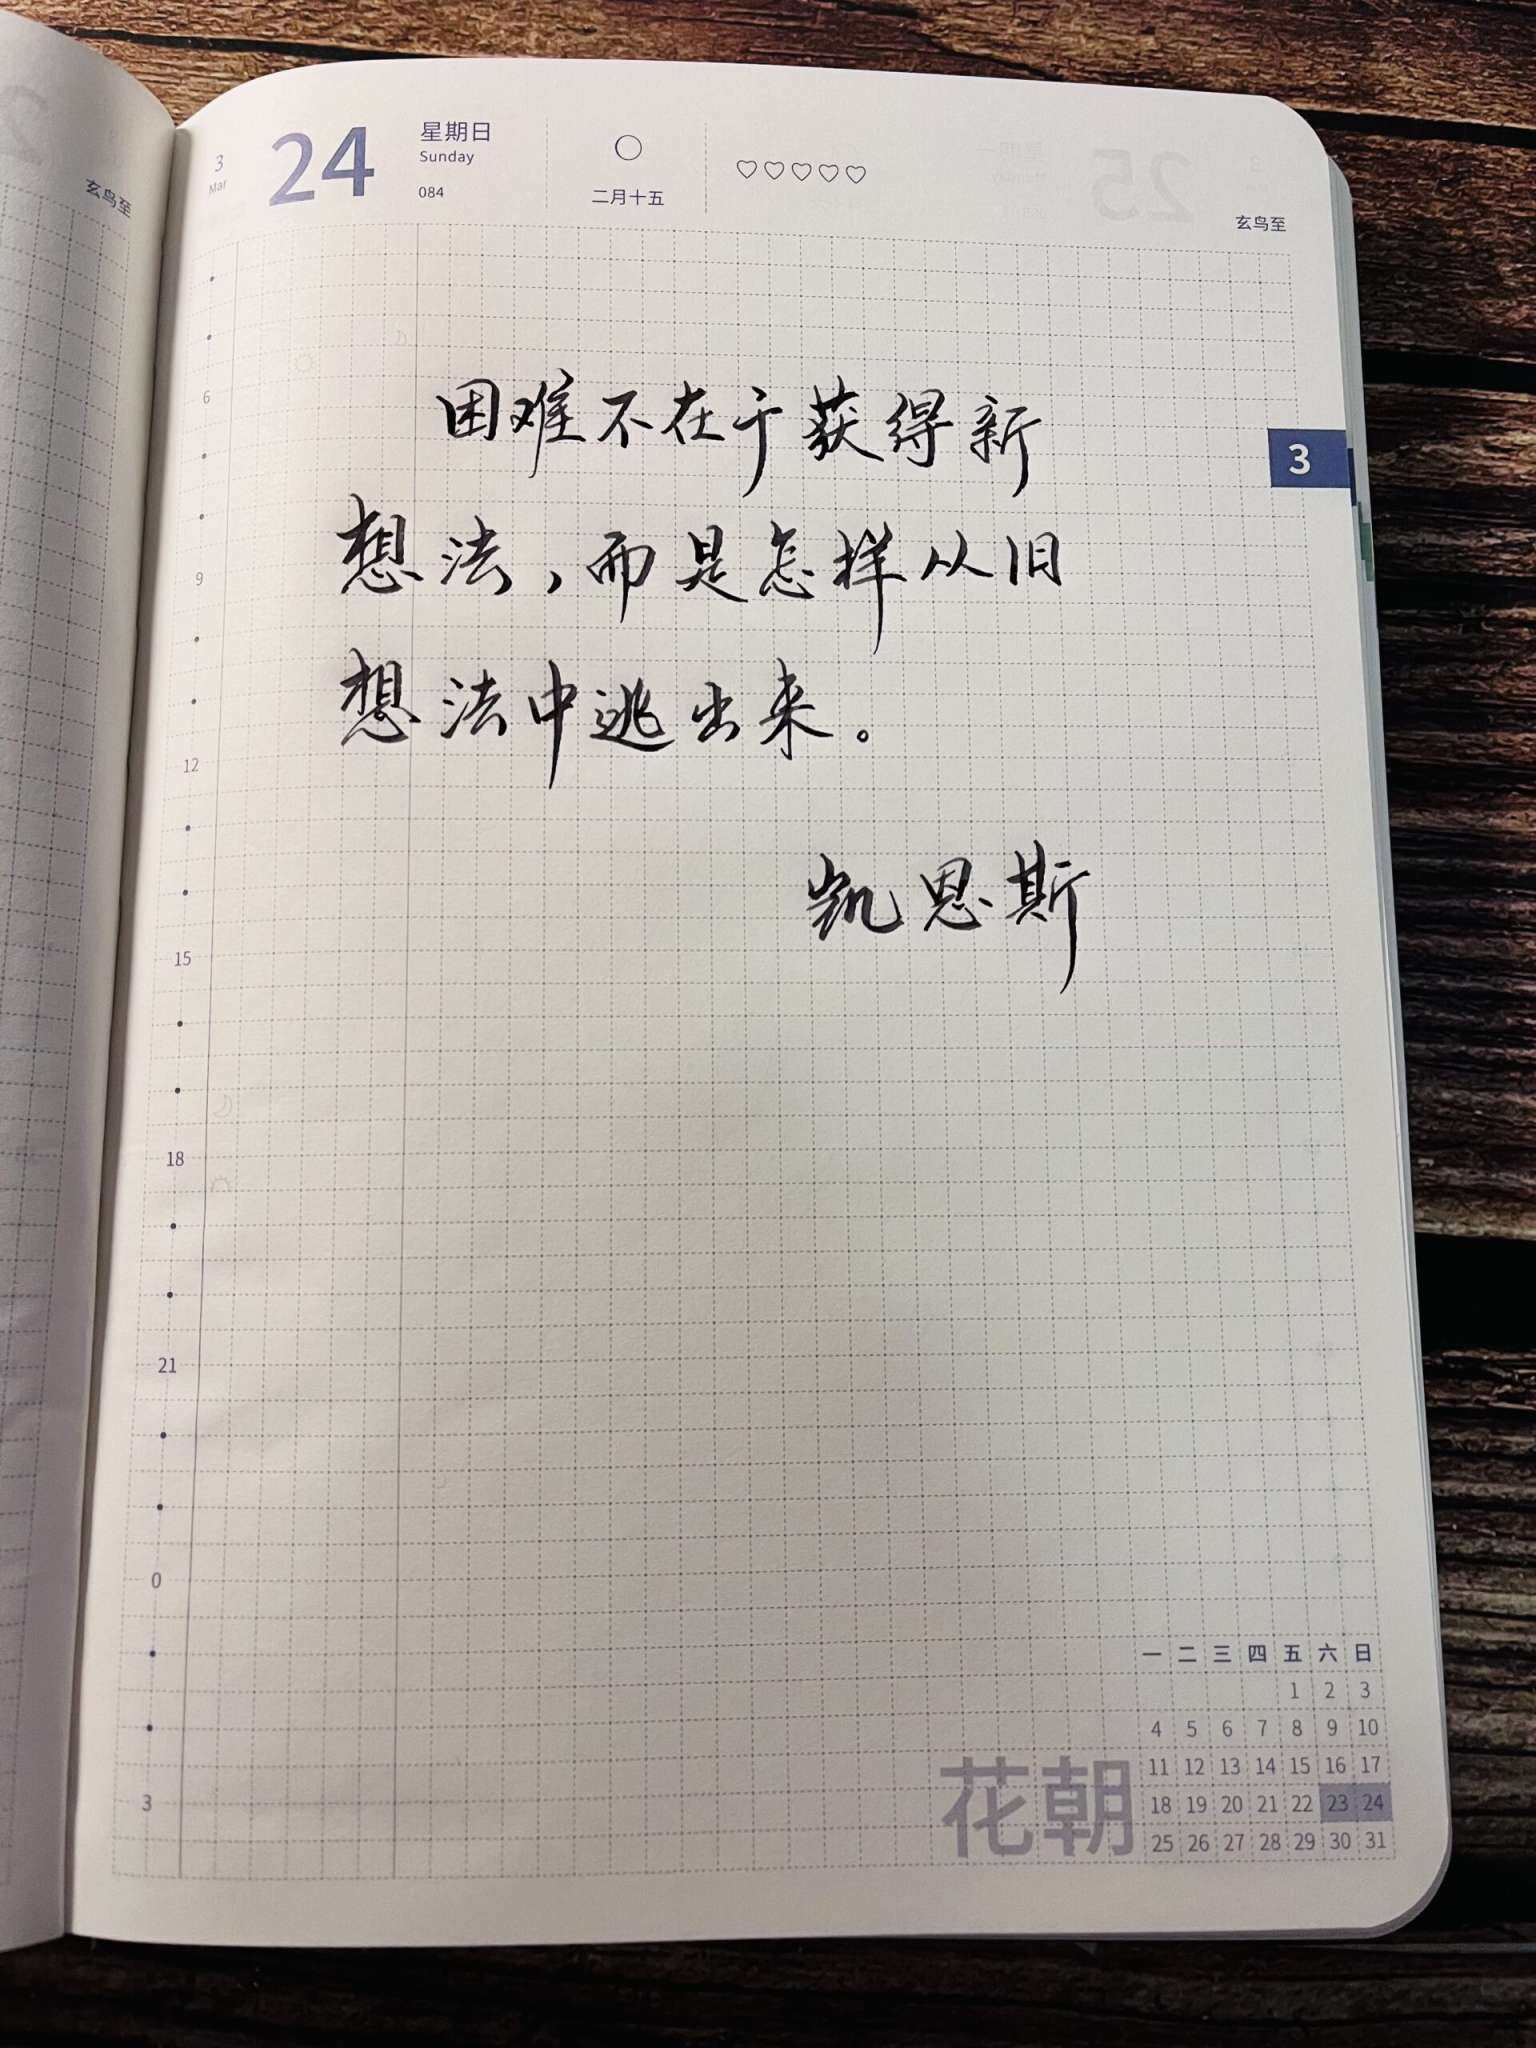 3
Mar
24
星期日
Sunday
084
二月十五
玄鸟至
玄鸟至
3
困难不在于获得新
想法，而是怎样从旧
想法中逃出来。
凯恩斯
6
9
12
15
18
21
0
3
花朝
一 二 三 四 五 六 日
1 2 3
4 5 6 7 8 9 10
11 12 13 14 15 16 17
18 19 20 21 22 23 24
25 26 27 28 29 30 31